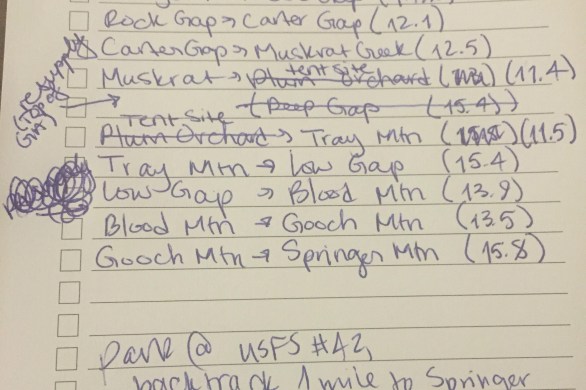 Rock Gap → Carter Gap (12.1)
Carter Gap → Muskrat Creek (12.5)
tent site
Muskrat → Plum Orchard (11.4)
(Deep Gap (15.4))
Tent Site
Plum Orchard → Tray Mtn (11.5)
Tray Mtn → Low Gap (15.4)
Low Gap → Blood Mtn (13.9)
Blood Mtn → Gooch Mtn (13.5)
Gooch Mtn → Springer Mtn (15.8)
resupply
(Top of
GA)
Park @ USFS #42,
backtrack 1 mile to Springer